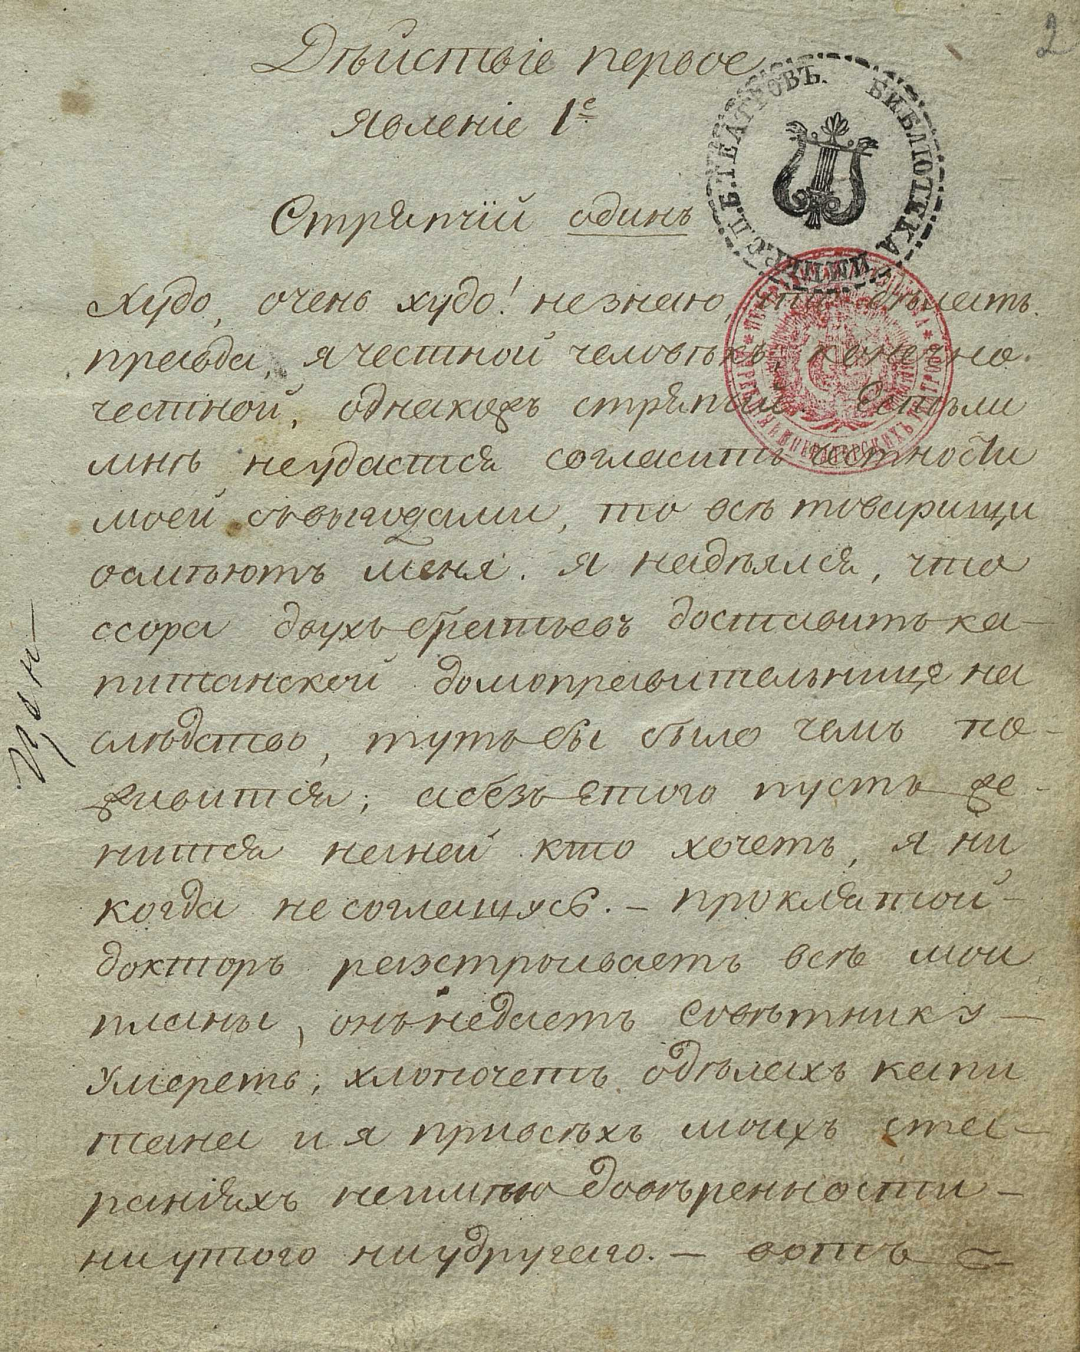 2
Дѣйствіе первое
Явленіе 1е
Стряпчій одинъ
Худо, очень худо! незнаю, что дѣлать.
правда, я честной человѣкъ, конечно
честной, однакожъ стряпчій. Естьли
мнѣ неудастся согласить честности
моей съвыгодами, то всѣ товарищи
осмѣютъ меня. Я надѣялся, что
ссора двухъ братьевъ доставитъ ка-
питанской домоправительницѣ на
слѣдство, тутъ бы было чемъ по-
живится; а безъ этого пусть же-
нится наней кто хочетъ, я ни
когда несоглашусь. — проклятой
докторъ разстроиваетъ всѣ мои
планы, онъ недаетъ Совѣтнику
умереть, хлопочетъ одѣлахъ капи
тана и я привсѣхъ моихъ ста-
раніяхъ неимѣю довѣренности
ниутого ниудругаго. — вотъ
БИБЛІОТЕКА ИМПЕР. С.П.Б. ТЕАТРОВЪ.